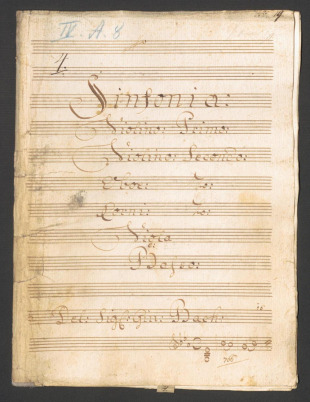 IV. A. 8
1.
Sinfonia:
Violino: Primo:
Violino: Secondo:
Oboe: 2o:
Corni: 2o:
Viola
è:
Basso:
Del: Sigl: Bach: